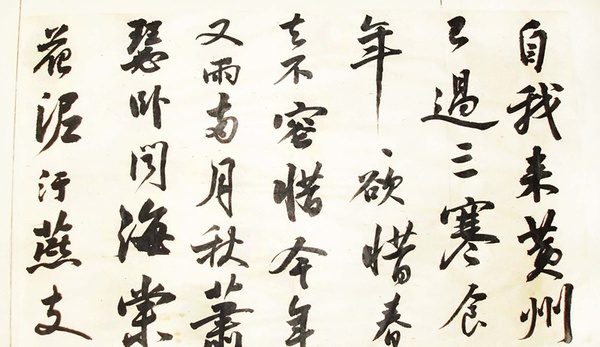 自我来黄州
已過三寒食
年〻欲惜春
去不容惜今年
又雨兩月秋蕭
瑟卧聞海棠
花泥汙燕支